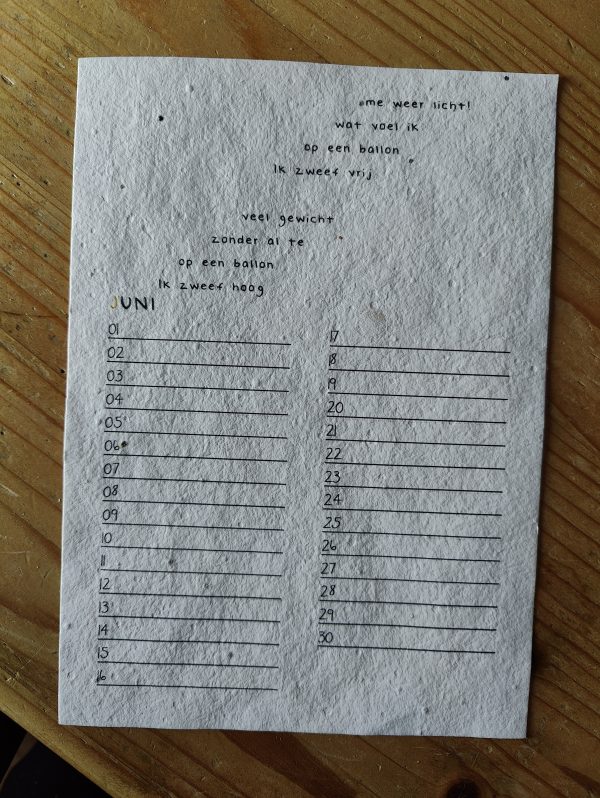 me weer licht!
wat voel ik
op een ballon
Ik zweef vrij
veel gewicht
zonder al te
op een ballon
Ik zweef hoog
JUNI
01
02
03
04
05
06
07
08
09
10
11
12
13
14
15
16
17
18
19
20
21
22
23
24
25
26
27
28
29
30